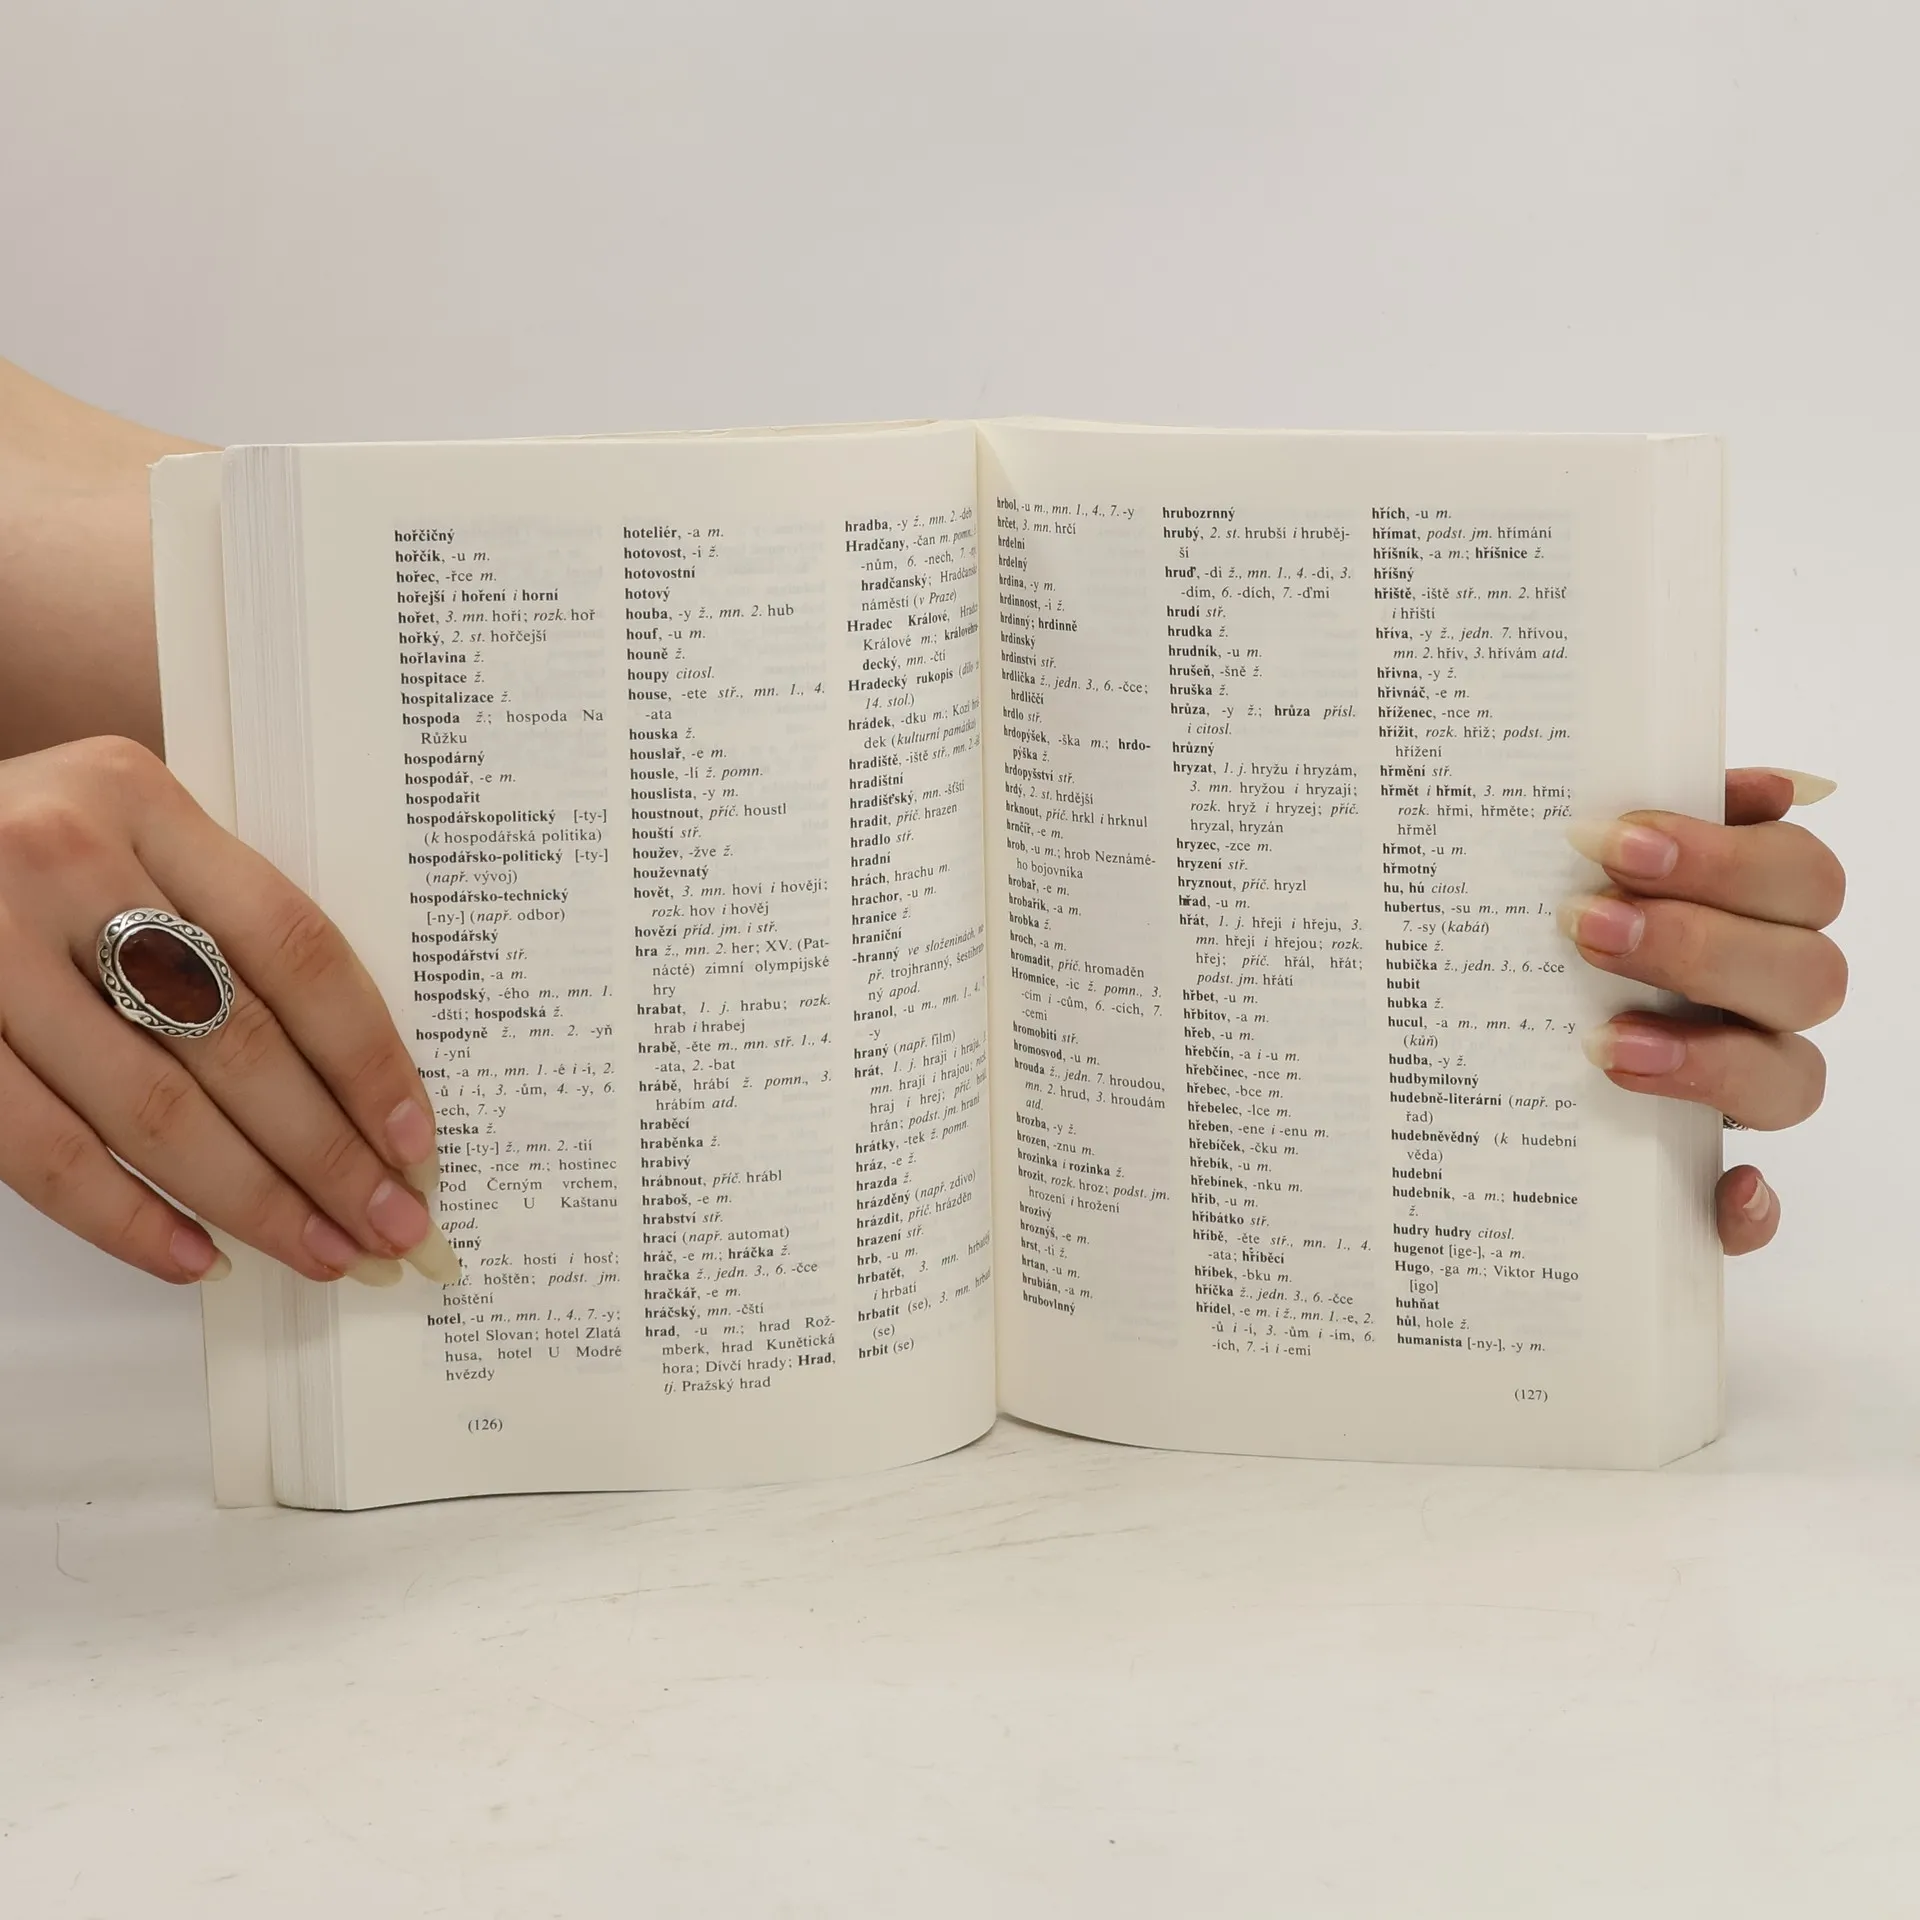 hořčičný
hořčík, -u m.
hořec, -řce m.
hořejší i hoření i horní
hořet, 3. mn. hoří; rozk. hoř
hořký, 2. st. hořčejší
hořlavina ž.
hospitace ž.
hospitalizace ž.
hospoda ž.; hospoda Na
Růžku
hospodárný
hospodář, -e m.
hospodařit
hospodářskopolitický [-ty-]
(k hospodářská politika)
hospodářsko-politický [-ty-]
(např. vývoj)
hospodářsko-technický
[-ny-] (např. odbor)
hospodářský
hospodářství stř.
Hospodin, -a m.
hospodský, -ého m., mn. 1.
-dští; hospodská ž.
hospodyně ž., mn. 2. -yň
i -yní
host, -a m., mn. 1. -é i -i, 2.
-ů i -í, 3. -ům, 4. -y, 6.
-ech, 7. -y
steska ž.
stie [-ty-] ž., mn. 2. -tií
stinec, -nce m.; hostinec
Pod Černým vrchem,
hostinec U Kaštanu
apod.
tinný
rozk. hosti i hosť;
příč. hoštěn; podst. jm.
hoštění
hotel, -u m., mn. 1., 4., 7. -y;
hotel Slovan; hotel Zlatá
husa, hotel U Modré
hvězdy
(126)
hoteliér, -a m.
hotovost, -i ž.
hotovostní
hotový
houba, -y ž., mn. 2. hub
houf, -u m.
houně ž.
houpy citosl.
house, -ete stř., mn. 1., 4.
-ata
houska ž.
houslař, -e m.
housle, -lí ž. pomn.
houslista, -y m.
houstnout, příč. houstl
houští stř.
houžev, -žve ž.
houževnatý
hovět, 3. mn. hoví i hovějí;
rozk. hov i hověj
hovězí příd. jm. i stř.
hra ž., mn. 2. her; XV. (Pat-
nácté) zimní olympijské
hry
hrabat, 1. j. hrabu; rozk.
hrab i hrabej
hrabě, -ěte m., mn. stř. 1., 4.
-ata, 2. -bat
hrábě, hrábí ž. pomn., 3.
hrábím atd.
hraběcí
hraběnka ž.
hrabivý
hrábnout, příč. hrábl
hraboš, -e m.
hrabství stř.
hrací (např. automat)
hráč, -e m.; hráčka ž.
hračka ž., jedn. 3., 6. -čce
hračkář, -e m.
hráčský, mn. -čští
hrad, -u m.; hrad Rož-
mberk, hrad Kunětická
hora; Dívčí hrady; Hrad,
tj. Pražský hrad
hradba, -y ž., mn. 2. -deb
Hradčany, -čan m. pomn.,
-nům, 6. -nech, 7.
hradčanský; Hradčanské
náměstí (v Praze)
Hradec Králové, Hradce
Králové m.; královéhra-
decký, mn. -čtí
Hradecký rukopis
14. stol.)
hrádek, -dku m.; Kozí hrá-
dek (kulturní památka)
hradiště, -iště stř., mn. 2.
hradištní
hradišťský, mn. -šťští
hradit, příč. hrazen
hradlo stř.
hradní
hrách, hrachu m.
hrachor, -u m.
hranice ž.
hraniční
-hranný ve složeninách,
př. trojhranný, šestihran-
ný apod.
hranol, -u m., mn. 1., 4.,
-y
hraný (např. film)
hrát, 1. j. hraji i hraju,
mn. hrají i hrajou;
hraj i hrej; příč.
hrán; podst. jm. hraní
hrátky, -tek ž. pomn.
hráz, -e ž.
hrazda ž.
hrázděný (např. zdivo)
hrázdit, příč. hrázděn
hrazení stř.
hrb, -u m.
hrbatět, 3. mn. hrbatějí
i hrbatí
hrbatit (se), 3. mn. hrbatí
(se)
hrbit (se)
hrbol, -u m., mn. 1., 4., 7. -y
hrčet, 3. mn. hrčí
hrdelní
hrdelný
hrdina, -y m.
hrdinnost, -i ž.
hrdinný; hrdinně
hrdinský
hrdinství stř.
hrdlička ž., jedn. 3., 6. -čce;
hrdliččí
hrdlo stř.
hrdopýšek, -ška m.; hrdo-
pýška ž.
hrdopyšství stř.
hrdý, 2. st. hrdější
hrknout, příč. hrkl i hrknul
hrnčíř, -e m.
hrob, -u m.; hrob Neznámé-
ho bojovníka
hrobař, -e m.
hrobařík, -a m.
hrobka ž.
hroch, -a m.
hromadit, příč. hromaděn
Hromnice, -ic ž. pomn., 3.
-cím i -cům, 6. -cích, 7.
-cemi
hromobití stř.
hromosvod, -u m.
hrouda ž., jedn. 7. hroudou,
mn. 2. hrud, 3. hroudám
atd.
hrozba, -y ž.
hrozen, -znu m.
hrozinka i rozinka ž.
hrozit, rozk. hroz; podst. jm.
hrození i hrožení
hrozivý
hroznýš, -e m.
hrst, -ti ž.
hrtan, -u m.
hrubián, -a m.
hrubovlnný
hrubozrnný
hrubý, 2. st. hrubší i hruběj-
ší
hruď, -di ž., mn. 1., 4. -di, 3.
-dím, 6. -dích, 7. -ďmi
hrudí stř.
hrudka ž.
hrudník, -u m.
hrušeň, -šně ž.
hruška ž.
hrůza, -y ž.; hrůza přísl.
i citosl.
hrůzný
hryzat, 1. j. hryžu i hryzám,
3. mn. hryžou i hryzají;
rozk. hryž i hryzej; příč.
hryzal, hryzán
hryzec, -zce m.
hryzení stř.
hryznout, příč. hryzl
hřad, -u m.
hřát, 1. j. hřeji i hřeju, 3.
mn. hřejí i hřejou; rozk.
hřej; příč. hřál, hřát;
podst. jm. hřátí
hřbet, -u m.
hřbitov, -a m.
hřeb, -u m.
hřebčín, -a i -u m.
hřebčinec, -nce m.
hřebec, -bce m.
hřebelec, -lce m.
hřeben, -ene i -enu m.
hřebíček, -čku m.
hřebík, -u m.
hřebínek, -nku m.
hřib, -u m.
hříbátko stř.
hříbě, -ěte stř., mn. 1., 4.
-ata; hříběcí
hříbek, -bku m.
hříčka ž., jedn. 3., 6. -čce
hřídel, -e m. i ž., mn. 1. -e, 2.
-ů i -í, 3. -ům i -ím, 6.
-ích, 7. -i i -emi
hřích, -u m.
hřímat, podst. jm. hřímání
hříšník, -a m.; hříšnice ž.
hříšný
hřiště, -iště stř., mn. 2. hřišť
i hřišti
hříva, -y ž., jedn. 7. hřívou,
mn. 2. hřív, 3. hřívám atd.
hřivna, -y ž.
hřivnáč, -e m.
hříženec, -nce m.
hřížit, rozk. hřiž; podst. jm.
hřížení
hřmění stř.
hřmět i hřmít, 3. mn. hřmí;
rozk. hřmi, hřměte; příč.
hřměl
hřmot, -u m.
hřmotný
hu, hú citosl.
hubertus, -su m., mn. 1.,
7. -sy (kabát)
hubice ž.
hubička ž., jedn. 3., 6. -čce
hubit
hubka ž.
hucul, -a m., mn. 4., 7. -y
(kůň)
hudba, -y ž.
hudbymilovný
hudebně-literární (např. po-
řad)
hudebněvědný (k hudební
věda)
hudební
hudebník, -a m.; hudebnice
ž.
hudry hudry citosl.
hugenot [ige-], -a m.
Hugo, -ga m.; Viktor Hugo
[igo]
huhňat
hůl, hole ž.
humanista [-ny-], -y m.
(127)